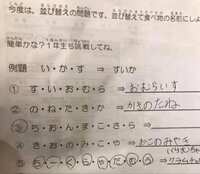 今度は、並び替えの問題です。並び替えて食べ物の名前にしよ
簡単かな？1年生も挑戦してね。
例題 い・か・す ⇒ すいか
① す・い・お・む・ら ⇒ おむらいす
② の・ね・た・き・か ⇒ かきのたね
③ ち・お・ん・ま・こ・さ・ら ⇒
④ き・み・や・お・の・こ ⇒ おこのみやき
⑤ ⇒